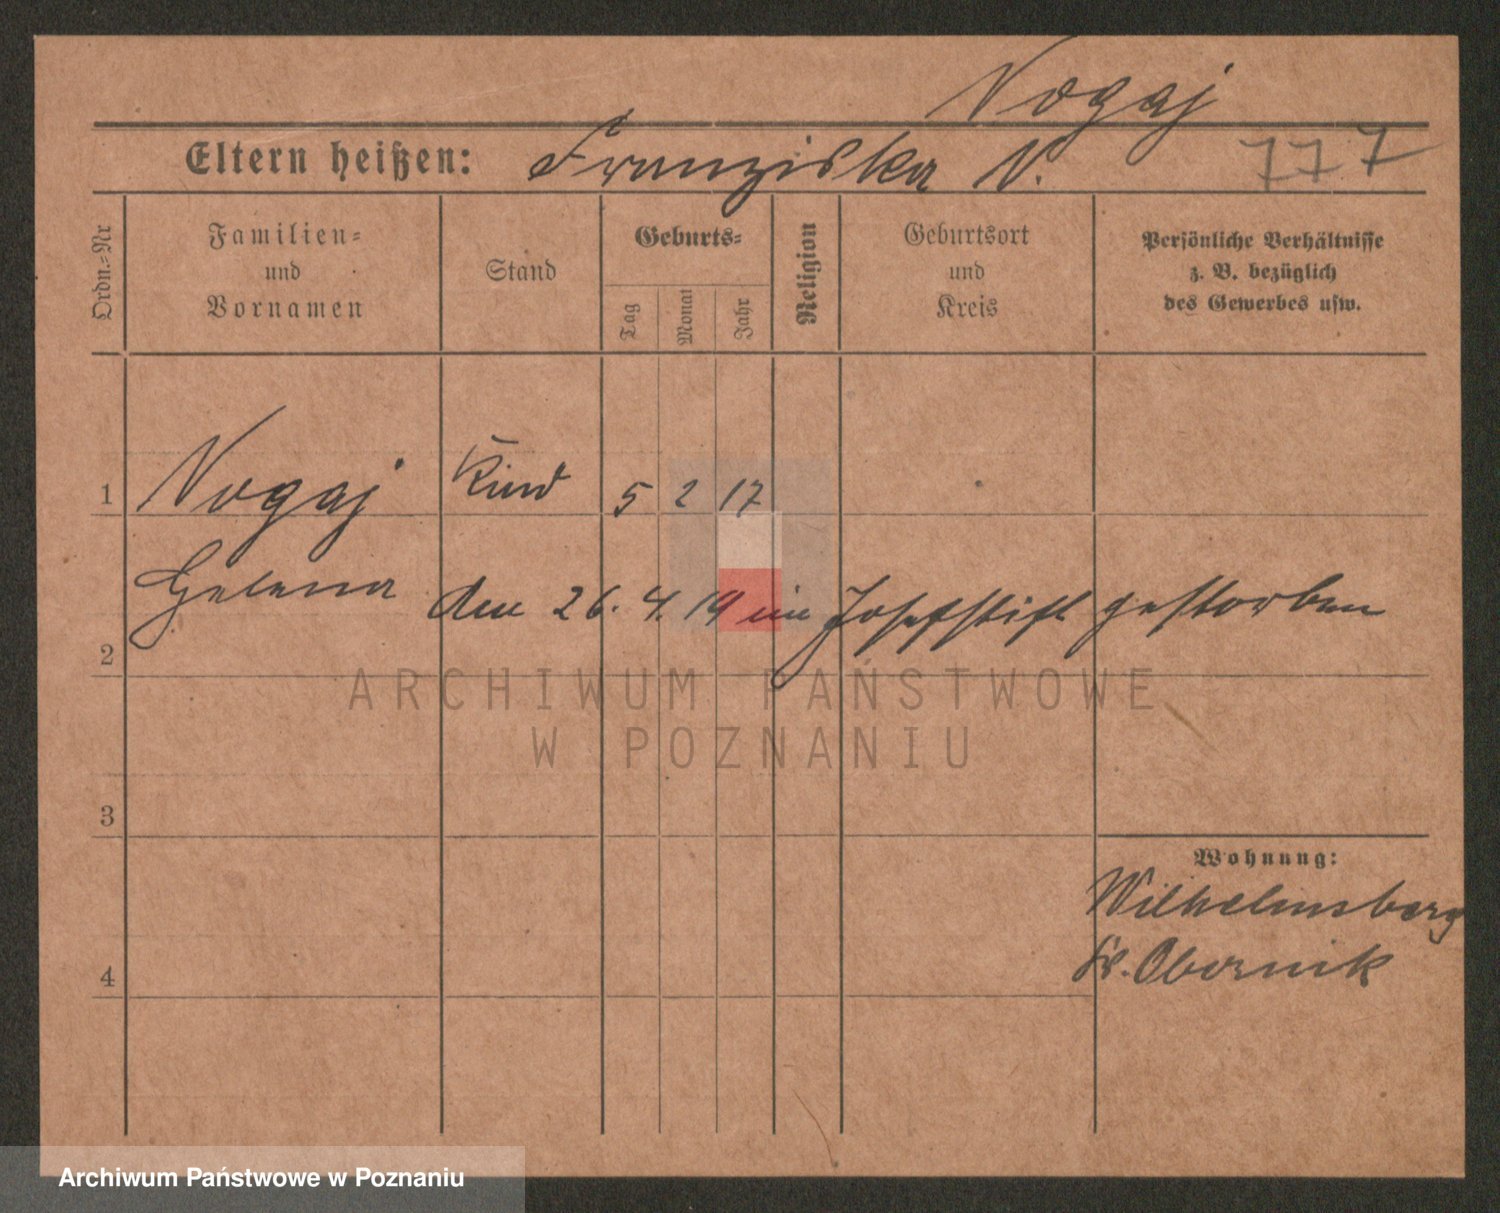 Nogaj
Eltern heißen: Franziska N. 777
Ordn.=Nr
Familien=
und
Vornamen
Stand
Geburts=
Tag
Monat
Jahr
Religion
Geburtsort
und
Kreis
Persönliche Verhältnisse
z. B. bezüglich
des Gewerbes usw.
1 Nogaj Kind 5 2 17
Helena den 26. 4. 19 im Josefstift gestorben
2
ARCHIWUM PAŃSTWOWE
W POZNANIU
3
Wohnung:
Wilhelmsberg
Kr. Obornik
4
Archiwum Państwowe w Poznaniu